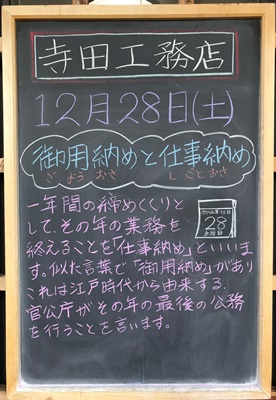 寺田工務店
12月28日(土)
御用納めと仕事納め
ごようおさ しごとおさ
一年間の締めくくりと
して、その年の業務を
終えることを「仕事納め」といいま
す。似た言葉で「御用納め」があり
これは江戸時代から由来する、
官公庁がその年の最後の公務
を行うことを言います。
28